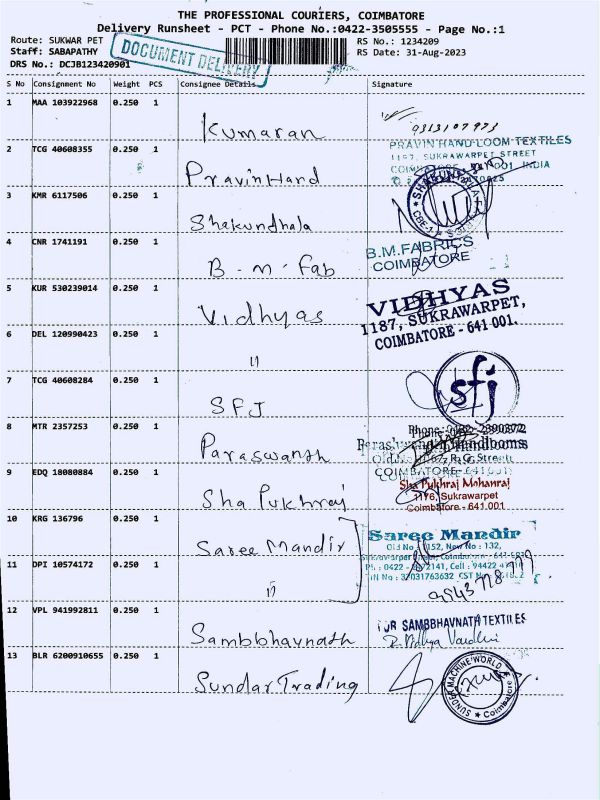 THE PROFESSIONAL COURIERS, COIMBATORE
Delivery Runsheet - PCT - Phone No.:0422-3505555 - Page No.:1
Route: SUKWAR PET
RS No.: 1234209
Staff: SABAPATHY
RS Date: 31-Aug-2023
DRS No.: DCJB123420901
DOCUMENT DELIVERY
S No Consignment No Weight PCS Consignee Details Signature
1 MAA 103922968 0.250 1
Kumaran
9313107973
2 TCG 40608355 0.250 1
PravinHand
PRAVIN HAND LOOM TEXTILES
SUKRAWARPET STREET
3 KMR 6117506 0.250 1
Shakundhala
4 CNR 1741191 0.250 1
B-m-Fab
B.M.FABRICS
COIMBATORE
5 KUR 530239014 0.250 1
Vidhyas
VIDHYAS
1187, SUKRAWARPET,
COIMBATORE - 641 001.
6 DEL 120990423 0.250 1
"
7 TCG 40608284 0.250 1
SFJ
sfj
8 MTR 2357253 0.250 1
Paraswanth
9 EDQ 18080884 0.250 1
Sha Pukhraj
Sha Pukhraj Mohanraj
1176, Sukrawarpet
Coimbatore - 641.001
10 KRG 136796 0.250 1
Saree Mandir
Saree Mandir
Old No : 152, New No : 132,
11 DPI 10574172 0.250 1
"
12 VPL 941992811 0.250 1
Sambbhavnath
FOR SAMBBHAVNATH TEXTILES
13 BLR 6200910655 0.250 1
Sundar Trading
SUNDER MACHINE WORLD
Coimbatore